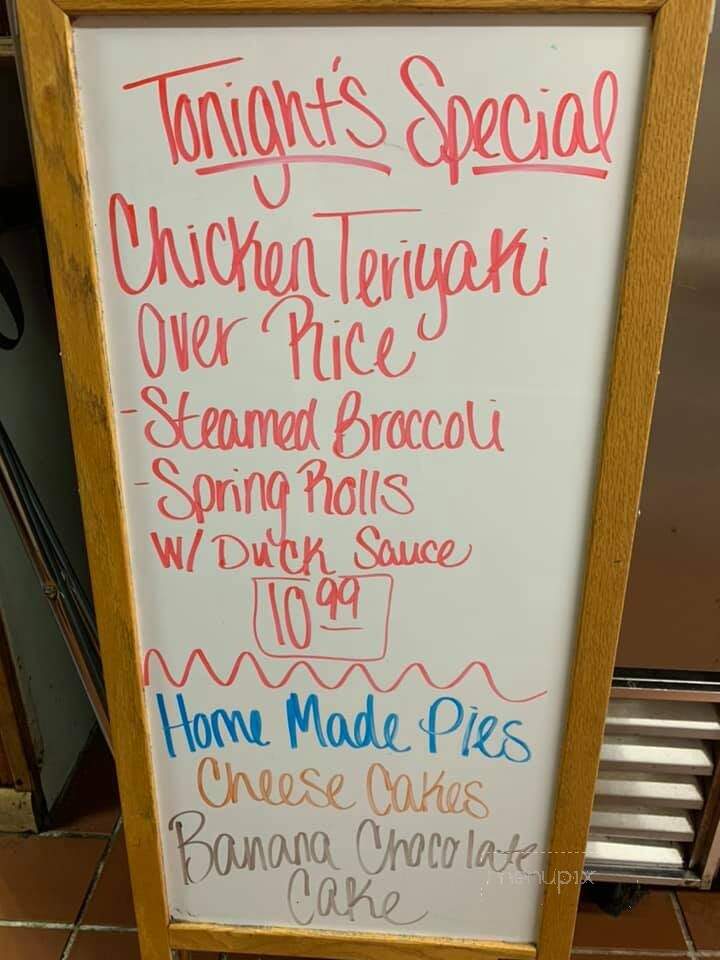 Tonight's Special
Chicken Teriyaki
Over Rice
-Steamed Broccoli
-Spring Rolls
W/ Duck Sauce
10 99
Home Made Pies
Cheese Cakes
Banana Chocolate
Cake
menupix